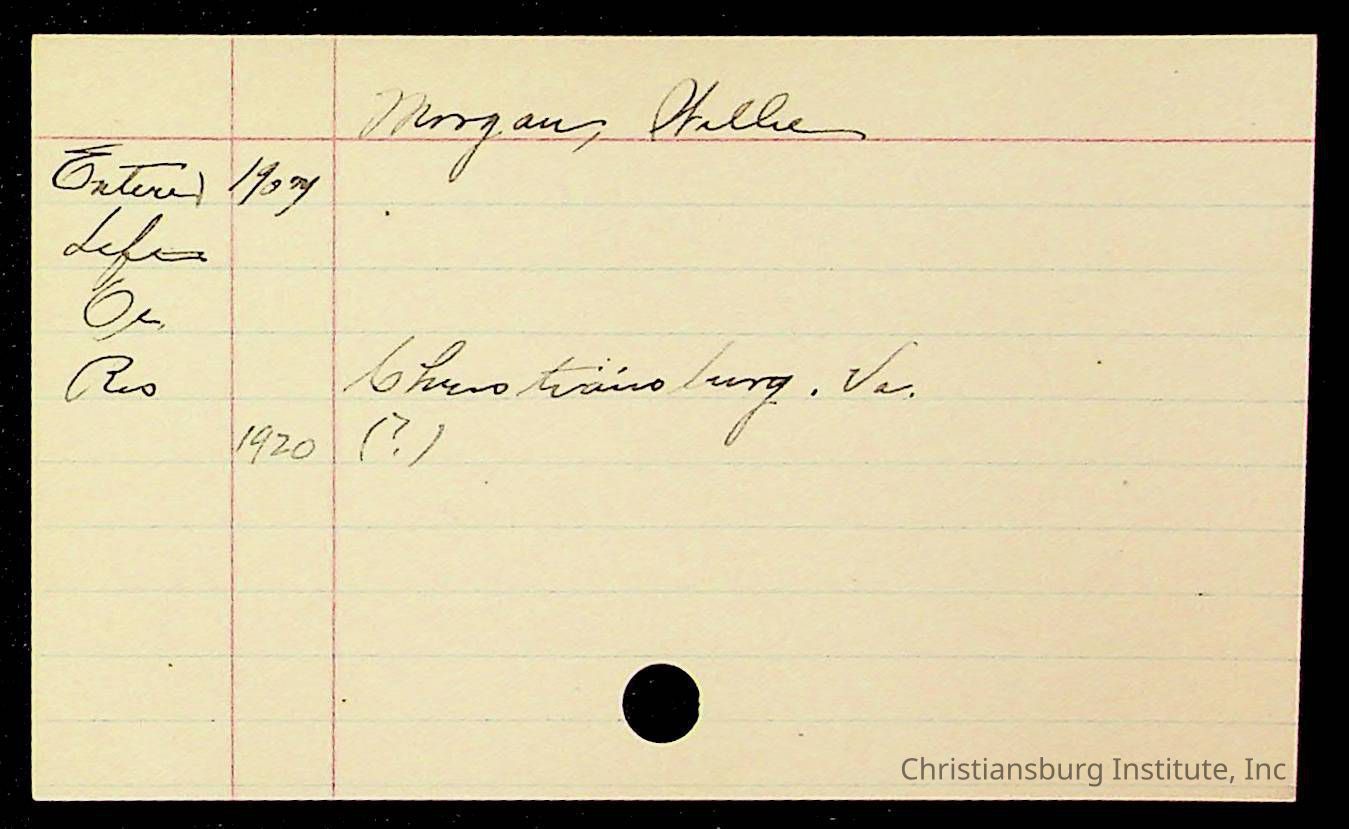 Morgan, Willie
Entered 1907
Left
Oc.
Res Christiansburg, Va.
1920 (?)
Christiansburg Institute, Inc